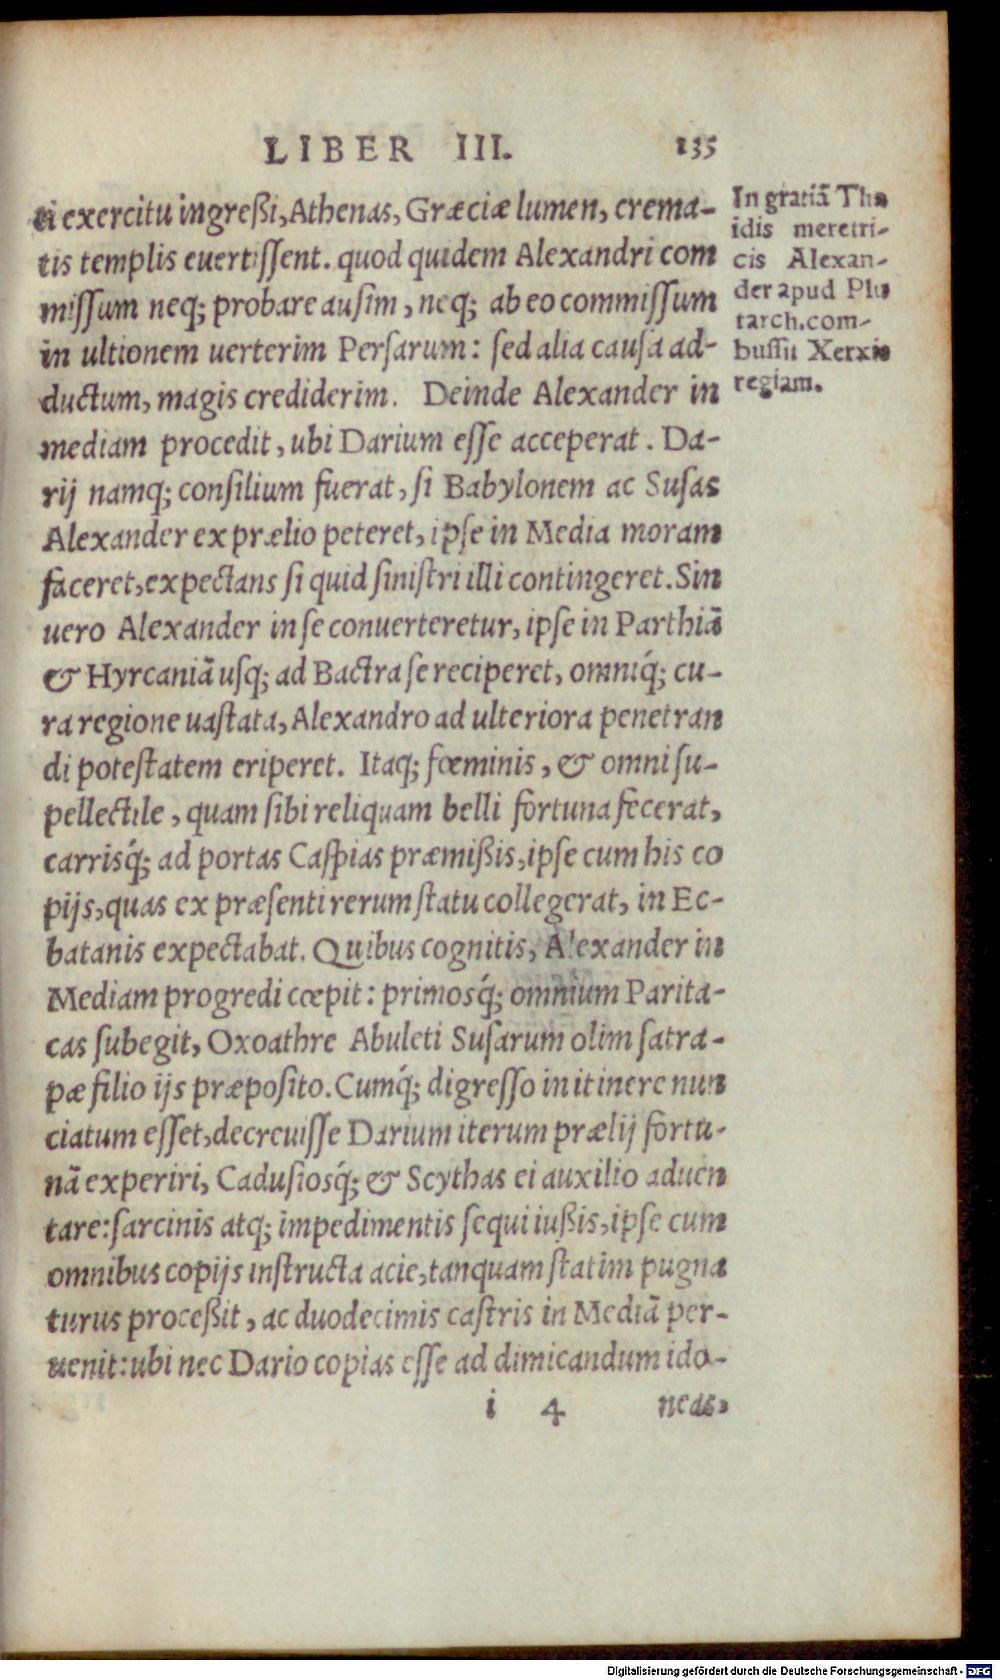 LIBER III. 135
ti exercitu ingreßi, Athenas, Græciæ lumen, crema-
tis templis euertiſſent. quod quidem Alexandri com
miſſum neq; probare auſim, neq; ab eo commiſſum
in ultionem uerterim Perſarum: ſed alia cauſa ad-
ductum, magis crediderim. Deinde Alexander in
mediam procedit, ubi Darium eſſe acceperat. Da-
rij namq; conſilium fuerat, ſi Babylonem ac Suſas
Alexander ex prælio peteret, ipſe in Media moram
faceret, expectans ſi quid ſiniſtri illi contingeret. Sin
uero Alexander in ſe conuerteretur, ipſe in Parthiā
& Hyrcaniā uſq; ad Bactra ſe reciperet, omniq́; cu-
ra regione uaſtata, Alexandro ad ulteriora penetran
di poteſtatem eriperet. Itaq; fœminis, & omni ſu-
pellectile, quam ſibi reliquam belli fortuna fecerat,
carrisq́; ad portas Caſpias præmißis, ipſe cum his co
pijs, quas ex præſenti rerum ſtatu collegerat, in Ec-
batanis expectabat. Quibus cognitis, Alexander in
Mediam progredi cœpit: primosq́; omnium Parita-
cas ſubegit, Oxoathre Abuleti Suſarum olim ſatra-
pæ filio ijs præpoſito. Cumq́; digreſſo in itinere nun
ciatum eſſet, decreuiſſe Darium iterum prælij fortu-
nā experiri, Cadusiosq́; & Scythas ei auxilio aduen
tare: ſarcinis atq; impedimentis ſequi iußis, ipſe cum
omnibus copijs inſtructa acie, tanquam ſtatim pugna
turus proceßit, ac duodecimis caſtris in Mediā per-
uenit: ubi nec Dario copias eſſe ad dimicandum ido-
i 4 neas,
In gratiā Tha
idis meretri-
cis Alexan-
der apud Plu
tarch. com-
buſſit Xerxis
regiam.
Digitalisierung gefördert durch die Deutsche Forschungsgemeinschaft - DFG